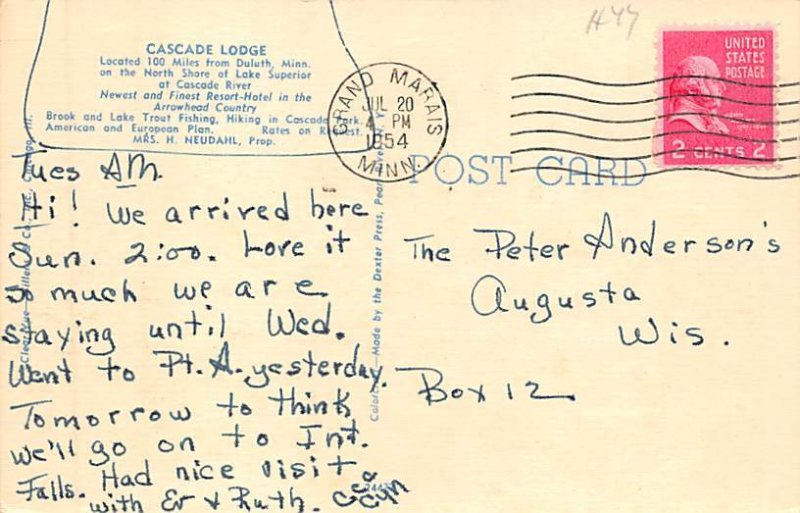 H44
CASCADE LODGE
Located 100 Miles from Duluth, Minn.
on the North Shore of Lake Superior
at Cascade River
Newest and Finest Resort-Hotel in the
Arrowhead Country
Brook and Lake Trout Fishing, Hiking in Cascade Park.
American and European Plan. Rates on Request.
MRS. H. NEUDAHL, Prop.
GRAND MARAIS
JUL 20
4 PM
1954
MINN.
UNITED
STATES
POSTAGE
2 CENTS 2
POST CARD
Tues AM.
Hi! We arrived here
Sun. 2:00. Love it
so much we are
staying until Wed.
Went to Pt. A. yesterday.
Tomorrow to think
we'll go on to Int.
Falls. Had nice visit
with Er & Ruth.
The Peter Anderson's
Augusta
Wis.
Box 12
Made by the Dexter Press, Pearl